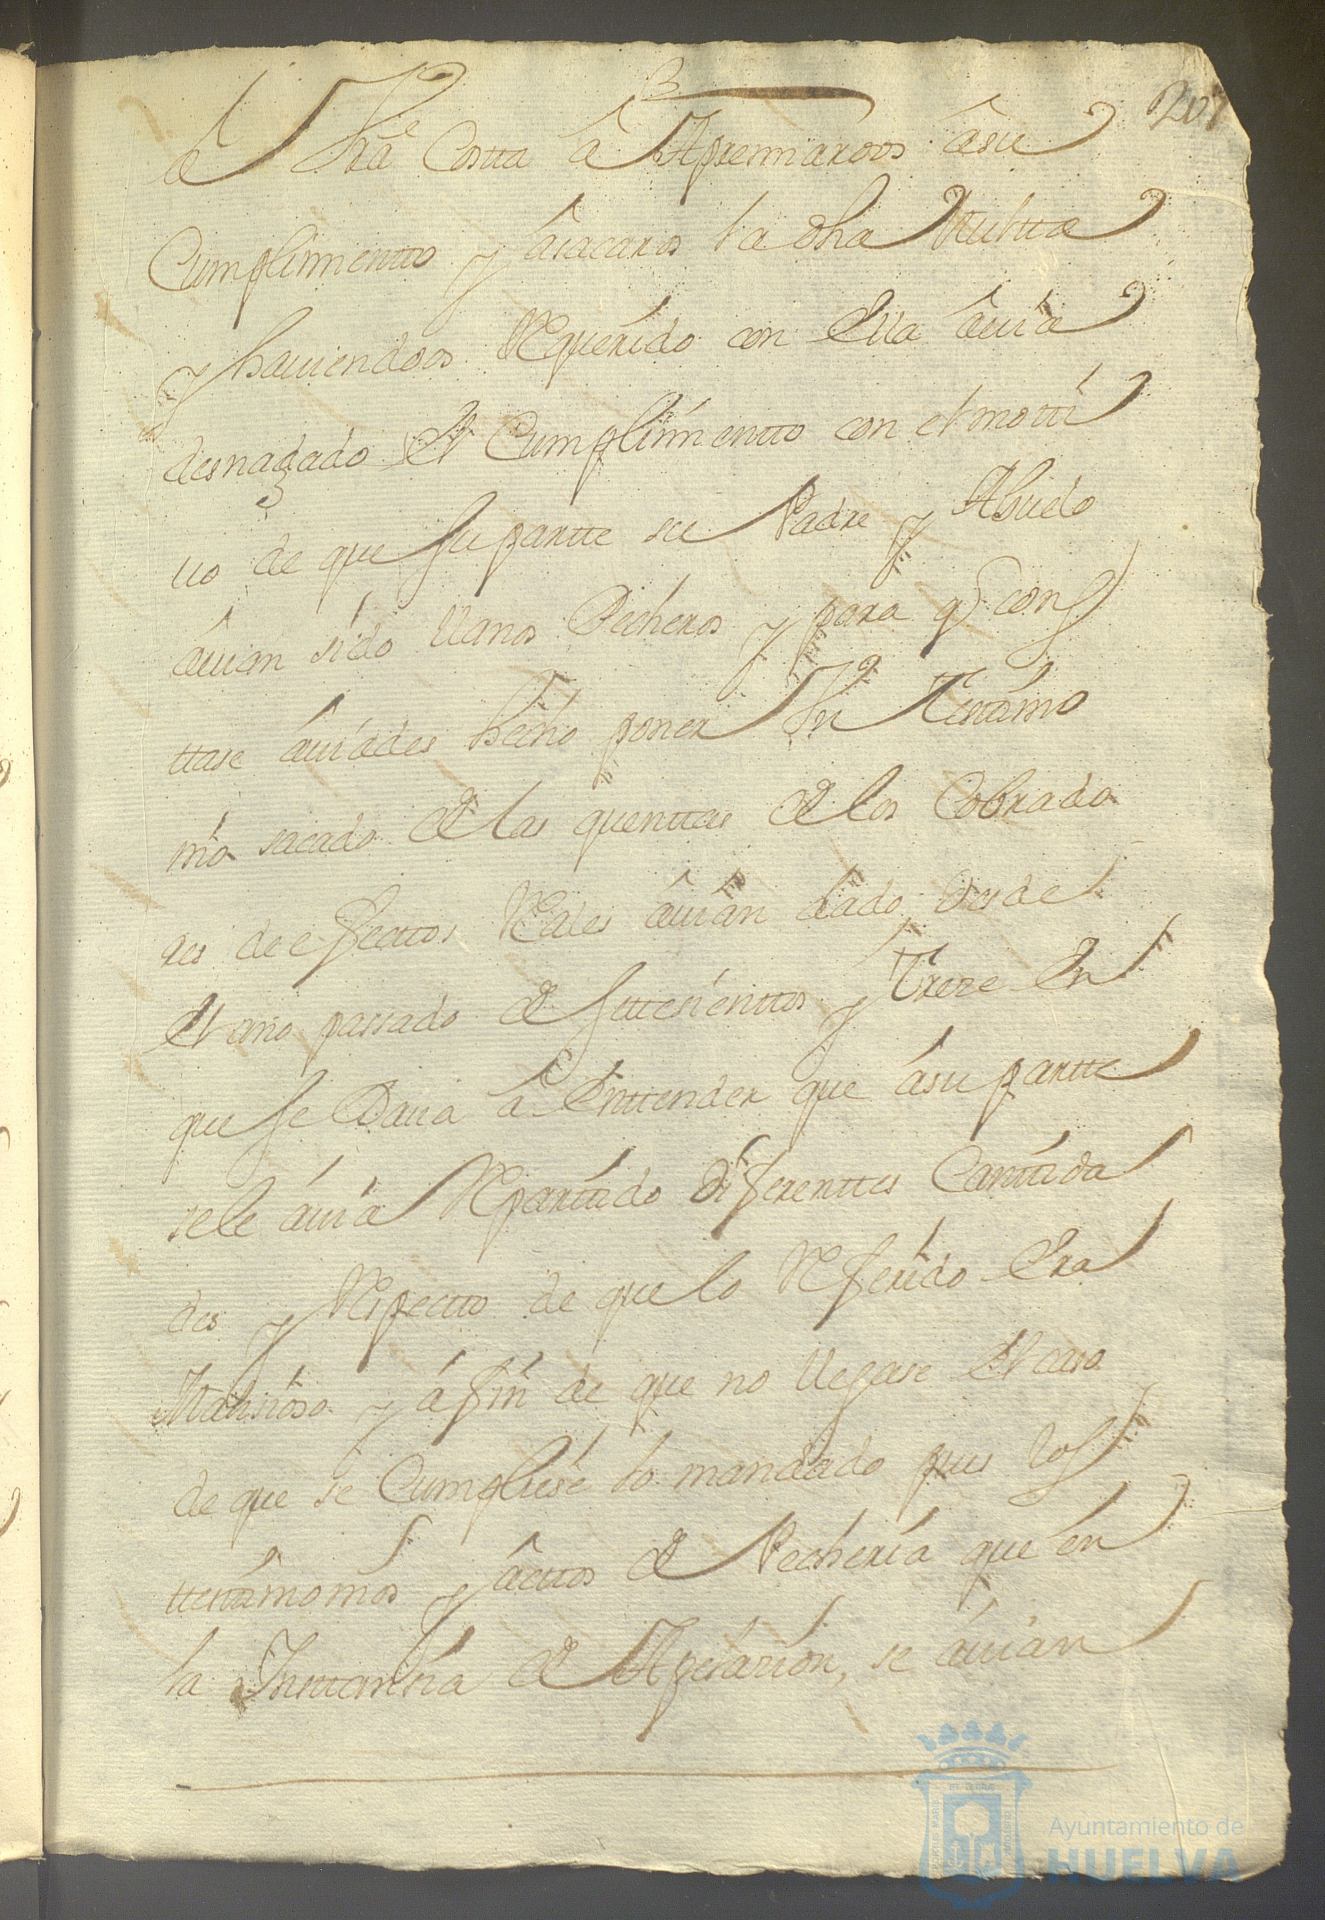 207
a Vrâ Costa â Apremiaros âsu
Cumplimientto y âsacaros la dha Multta
y hauiendoos Requerido con Ella âuia
desnagado el Cumplimientto con el motti
uo de que su partte su Padre y Abuelo
âuian sido llanos Pecheros y para q̃ cons
ttase âuiades hecho poner Un Testtimo
nio sacado de las quenttas de los Cobrado
res de efecttos Reales âuian dado desde
el año passado de settesienttos y treze En
que se Daua â Enttender que âsu partte
sele âuia Reparttido diferenttes Canttida
des y Respectto de que lo Referido Era
Malisioso y â fin de que no llegase el caso
de que se Cumpliese lo mandado pues los
ttesttimonios y âcttos de Pecheria que en
la Insttansia de Apelasion, se âuian
Ayuntamiento de
HUELVA